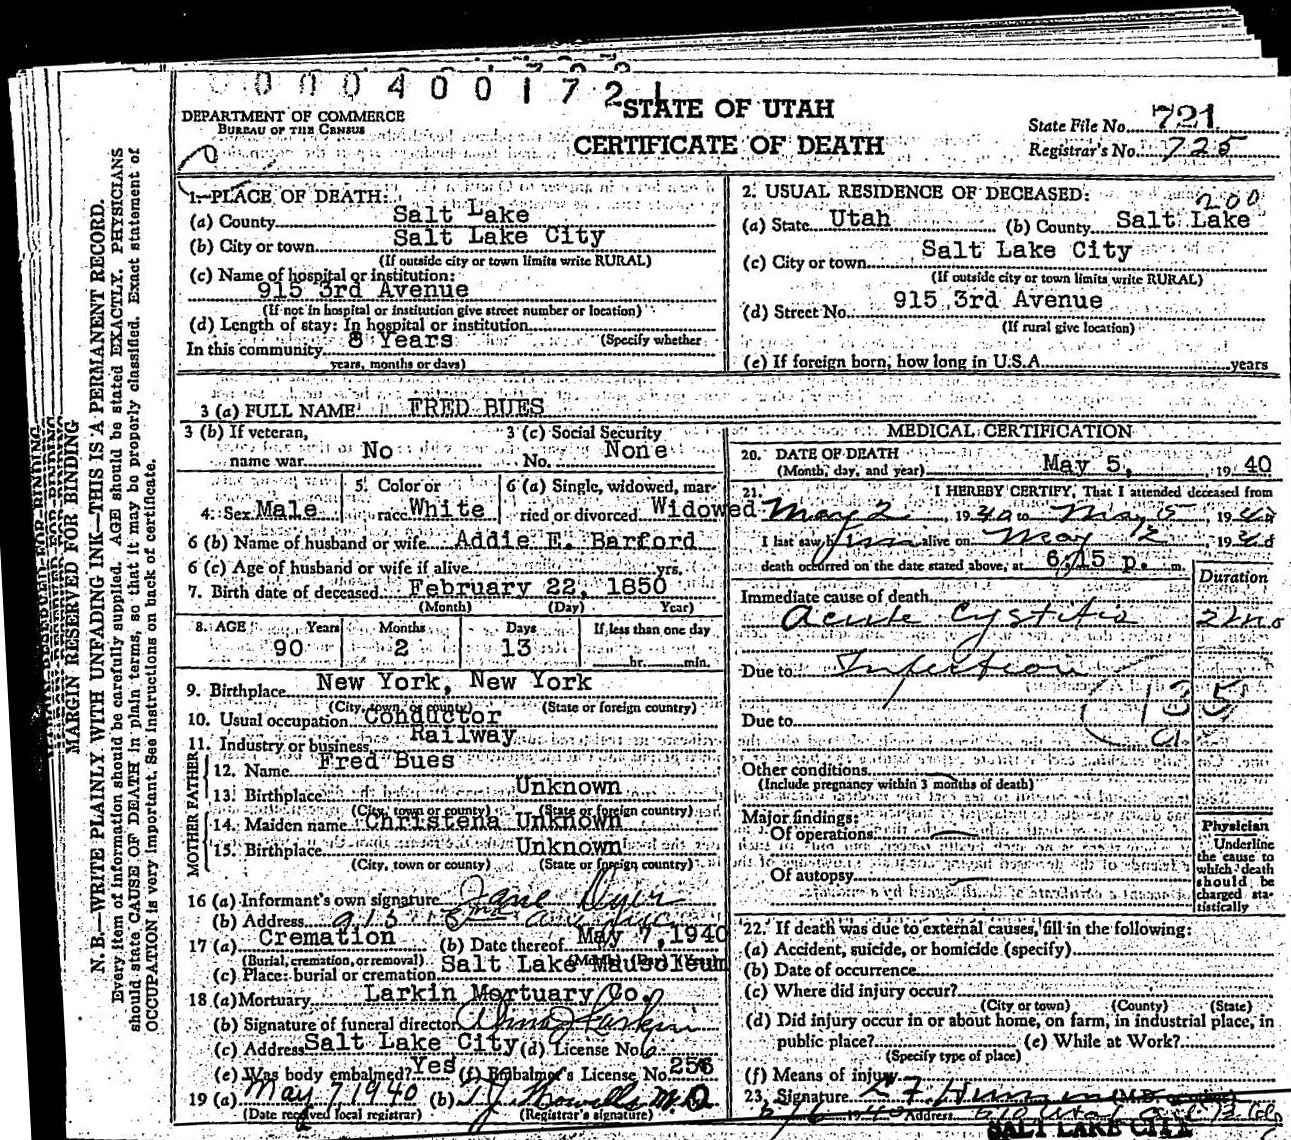 0 0 0 4 0 0 1 7 2 1
DEPARTMENT OF COMMERCE
BUREAU OF THE CENSUS
STATE OF UTAH
CERTIFICATE OF DEATH
State File No. 721
Registrar's No. 725
1. PLACE OF DEATH:
(a) County Salt Lake
(b) City or town Salt Lake City
(If outside city or town limits write RURAL)
(c) Name of hospital or institution:
915 3rd Avenue
(If not in hospital or institution give street number or location)
(d) Length of stay: In hospital or institution
(Specify whether
In this community 8 Years
years, months or days)
2. USUAL RESIDENCE OF DECEASED:
200
(a) State Utah (b) County Salt Lake
(c) City or town Salt Lake City
(If outside city or town limits write RURAL)
(d) Street No. 915 3rd Avenue
(If rural give location)
(e) If foreign born, how long in U.S.A. years
3 (a) FULL NAME FRED BUES
3 (b) If veteran, name war No
3 (c) Social Security No. None
4. Sex Male
5. Color or race White
6 (a) Single, widowed, married or divorced Widowed
6 (b) Name of husband or wife Addie E. Barford
6 (c) Age of husband or wife if alive yrs.
7. Birth date of deceased February 22, 1850
(Month) (Day) Year)
8. AGE Years Months Days If less than one day
90 2 13 hr. min.
9. Birthplace New York, New York
(City, town or county) (State or foreign country)
10. Usual occupation Conductor
11. Industry or business Railway
FATHER
12. Name Fred Bues
13. Birthplace Unknown
(City, town or county) (State or foreign country)
MOTHER
14. Maiden name Christena Unknown
15. Birthplace Unknown
(City, town or county) (State or foreign country)
16 (a) Informant's own signature Jane Dyer
(b) Address 915
17 (a) Cremation (b) Date thereof May 7, 1940
(Burial, cremation, or removal)
(c) Place: burial or cremation Salt Lake Mausoleum
18 (a) Mortuary Larkin Mortuary Co.
(b) Signature of funeral director Larkin
(c) Address Salt Lake City (d) License No.
(e) Was body embalmed? Yes (f) Embalmer's License No. 256
19 (a) May 7 1940 (b) M.D.
(Date received local registrar) (Registrar's signature)
MEDICAL CERTIFICATION
20. DATE OF DEATH
(Month, day, and year) May 5, 19 40
21. I HEREBY CERTIFY, That I attended deceased from
May 2 19 40 to May 5 19 40
I last saw him alive on May 19 40
death occurred on the date stated above, at 6:15 p. m.
Duration
Immediate cause of death
Acute Cystitis 2 mo
Due to Infection
135
Due to
Other conditions
(Include pregnancy within 3 months of death)
Major findings:
Of operations
Of autopsy
Physician
Underline
the cause to
which death
should be
charged sta-
tistically
22. If death was due to external causes, fill in the following:
(a) Accident, suicide, or homicide (specify)
(b) Date of occurrence
(c) Where did injury occur?
(City or town) (County) (State)
(d) Did injury occur in or about home, on farm, in industrial place, in
public place? (e) While at Work?
(Specify type of place)
(f) Means of injury
23. Signature (M.D. or other)
1940 Address
SALT LAKE CITY
MARGIN RESERVED FOR BINDING
N. B.—WRITE PLAINLY WITH UNFADING INK—THIS IS A PERMANENT RECORD.
Every item of information should be carefully supplied. AGE should be stated EXACTLY. PHYSICIANS
should state CAUSE OF DEATH in plain terms, so that it may be properly classified. Exact statement of
OCCUPATION is very important. See instructions on back of certificate.